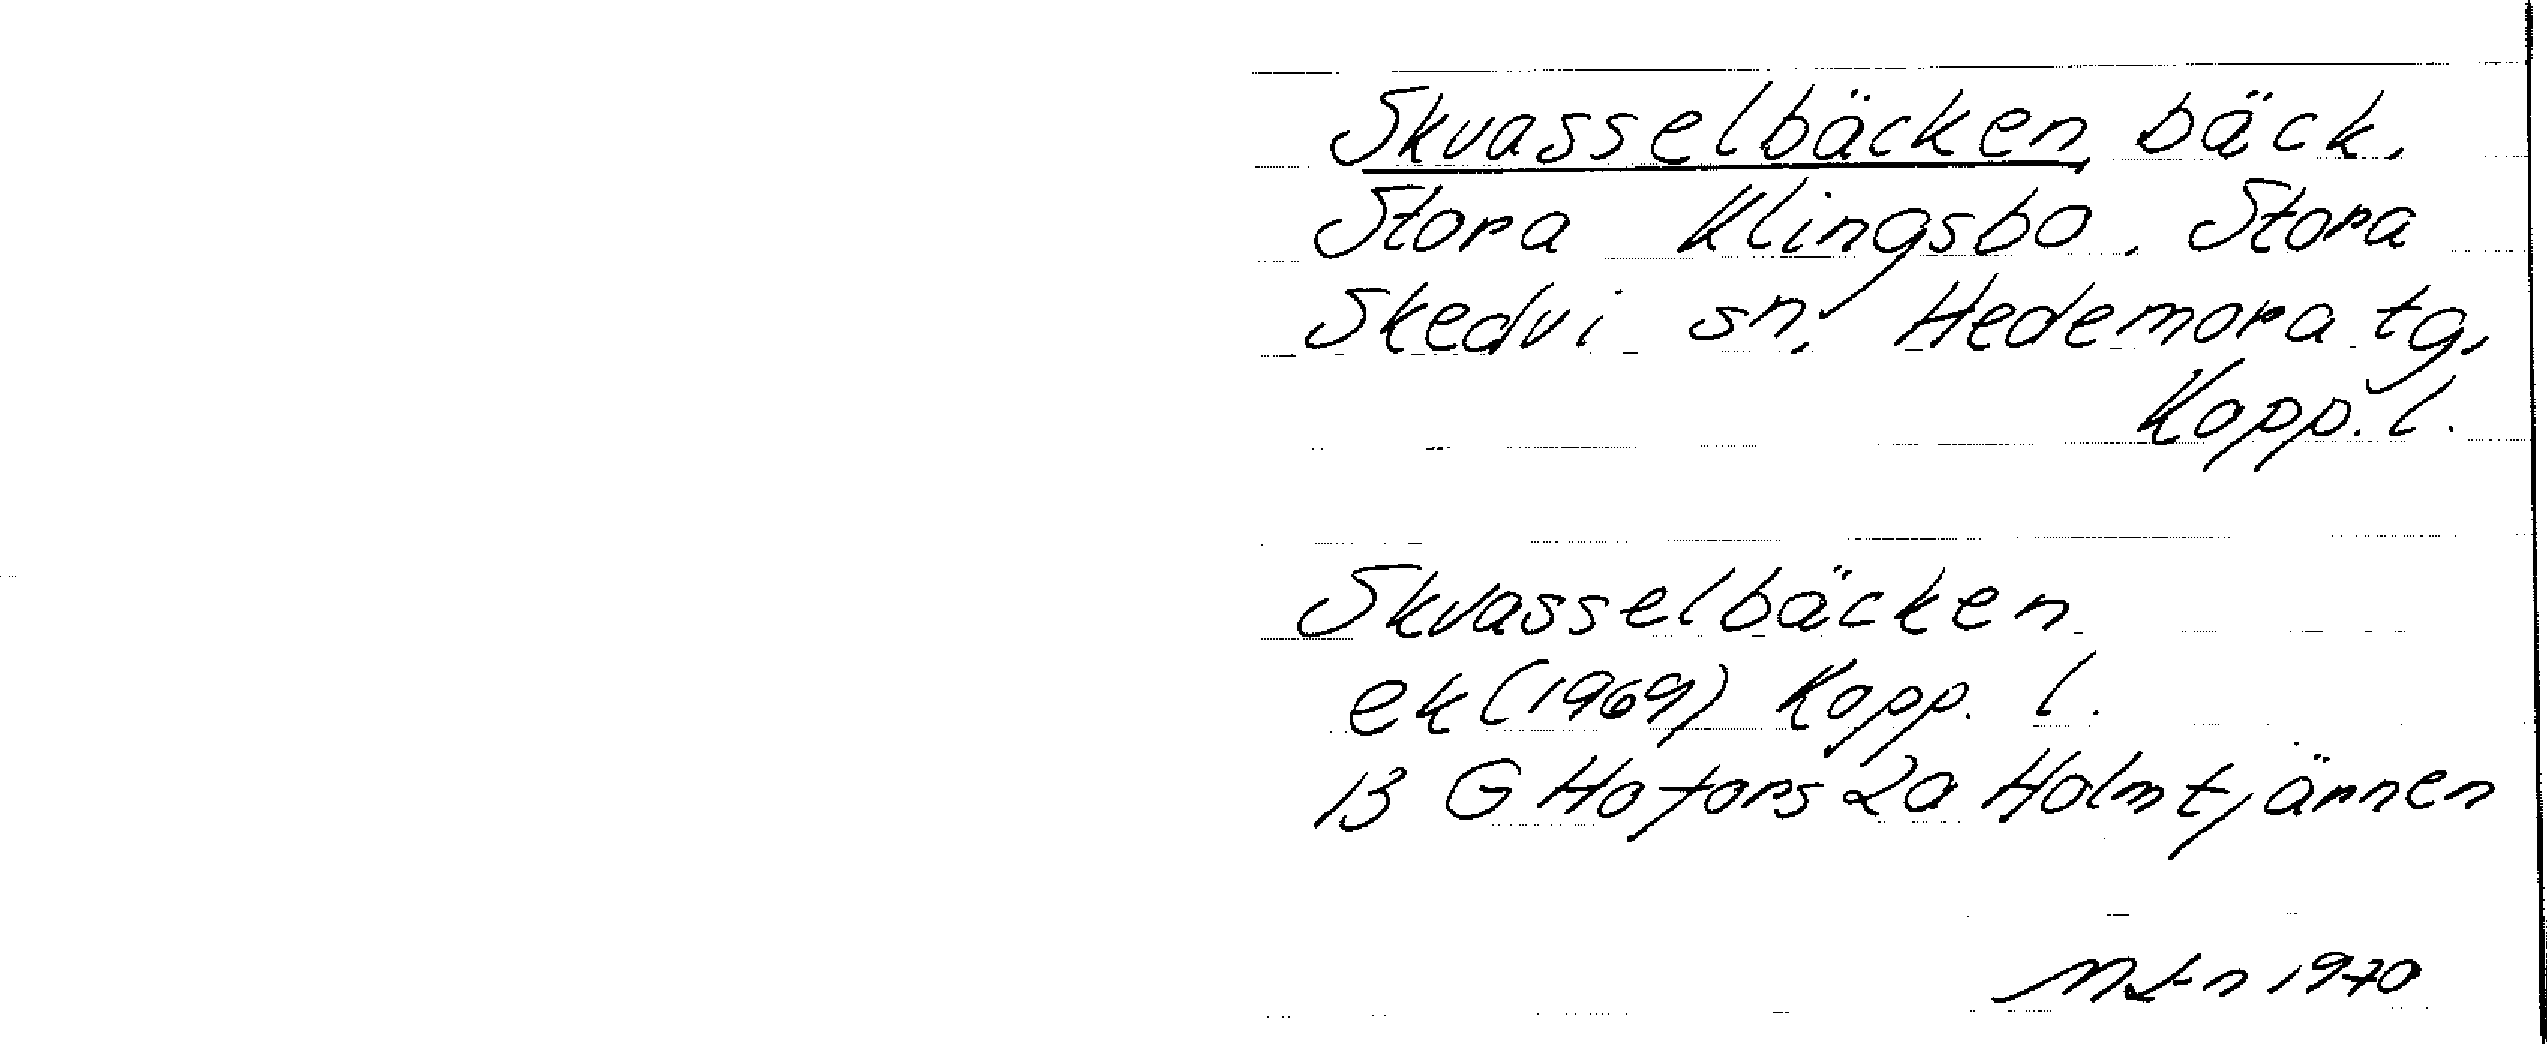 Skvasselbäcken, bäck,
Stora Klingsbo, Stora
Skedvi sn, Hedemora tg,
Kopp. l.
Skvasselbäcken
ek (1969) Kopp. l.
13 G Hofors 2a Holmtjärnen
1970